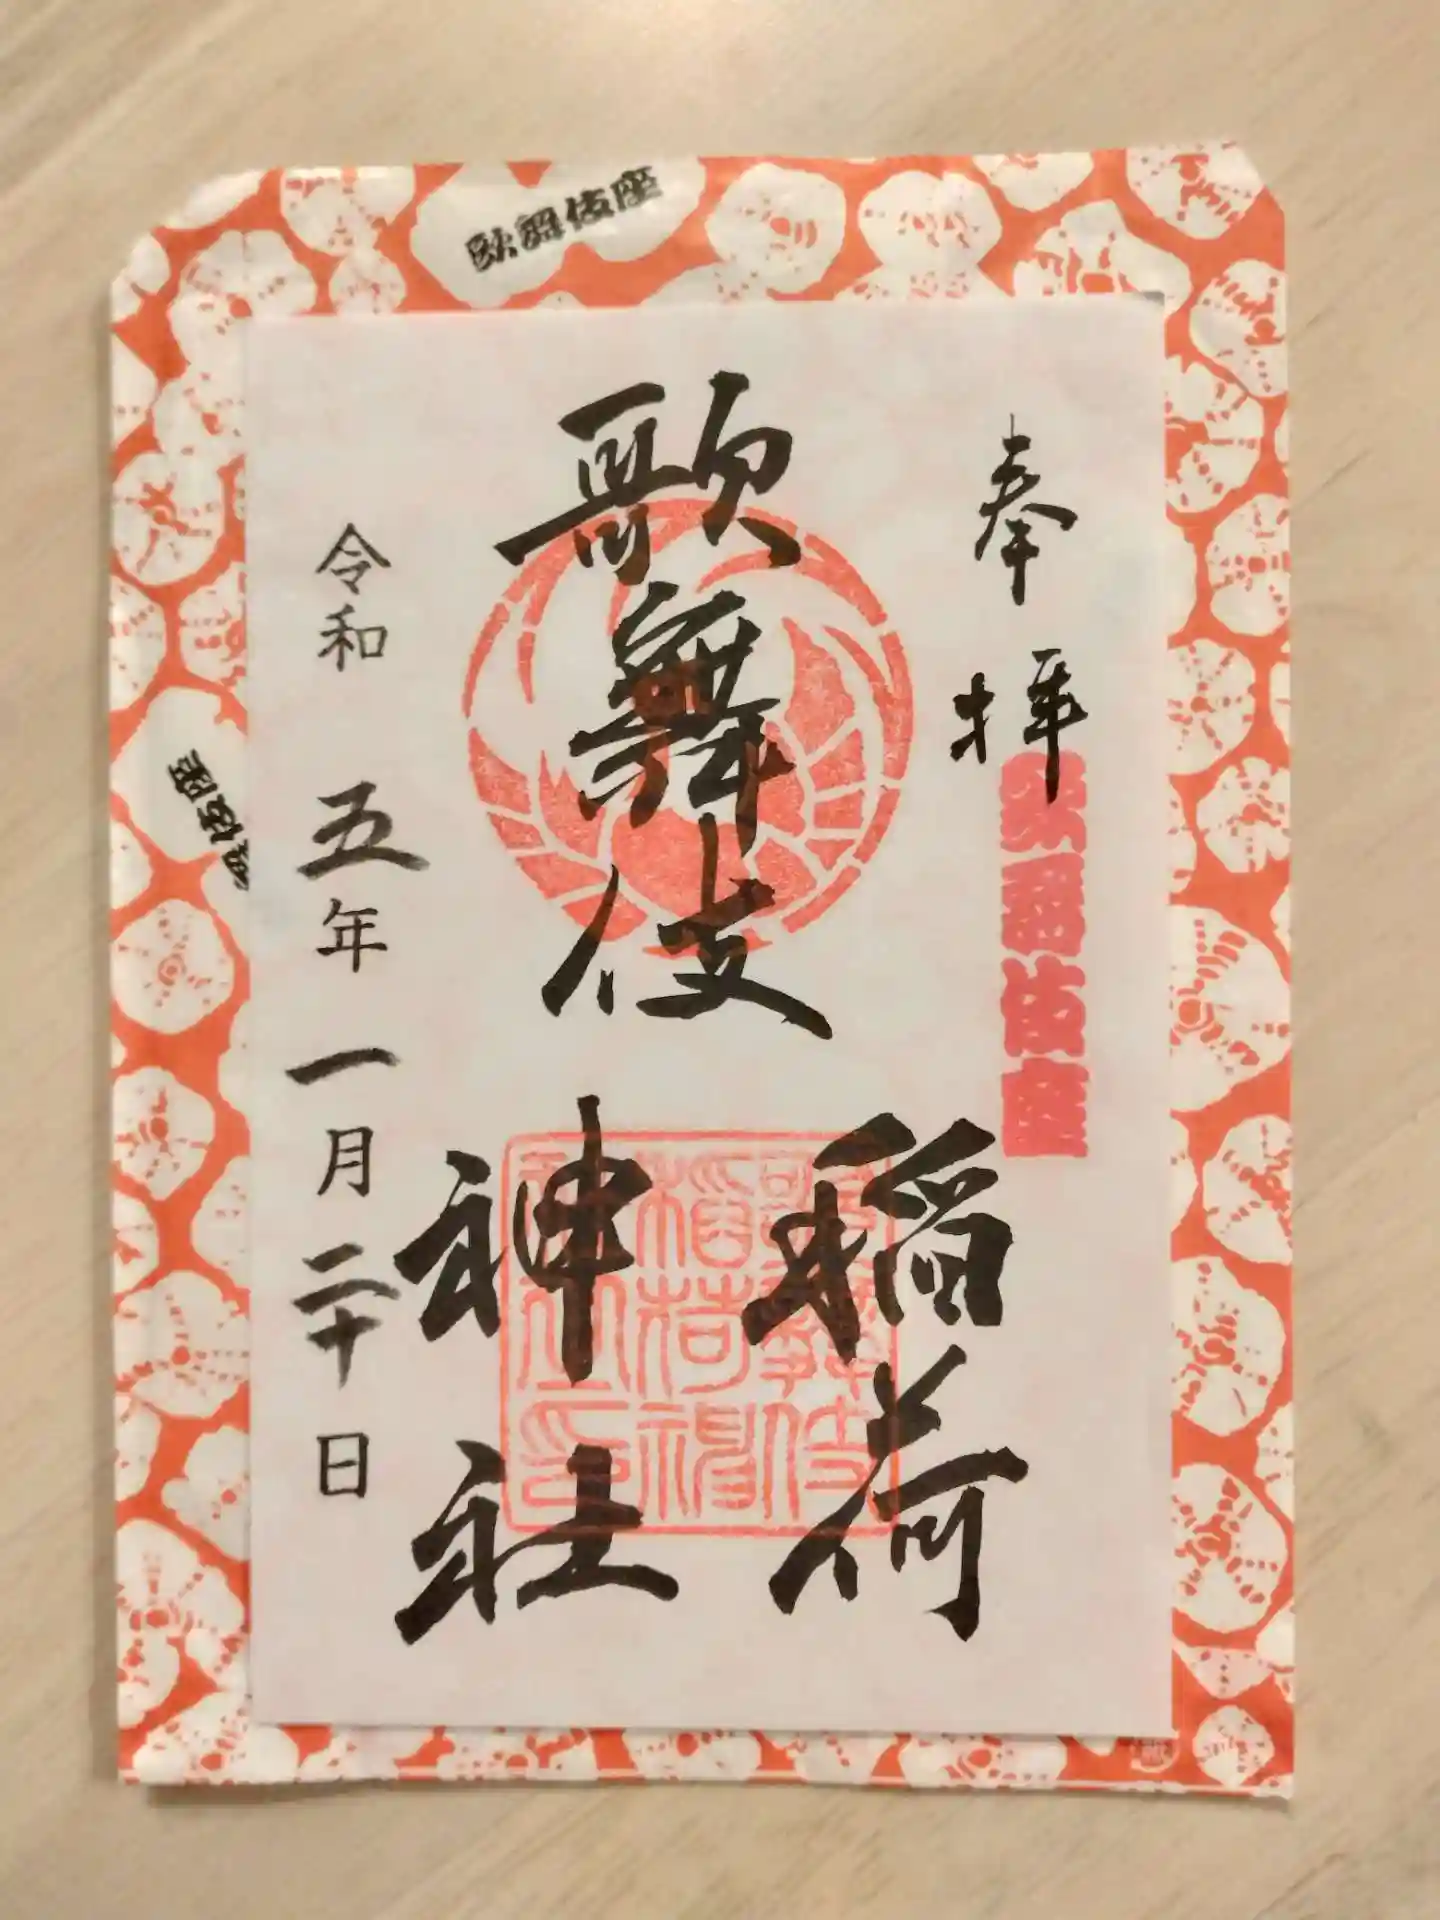 歌舞伎座
奉拝
歌舞伎座
歌舞伎
稲荷
神社
歌舞伎
稲荷神
社之印
令和五年一月二十日
舞伎座